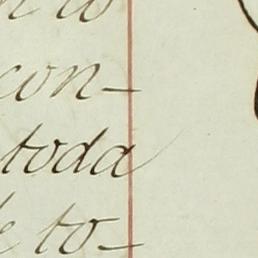 con-
toda
e to-